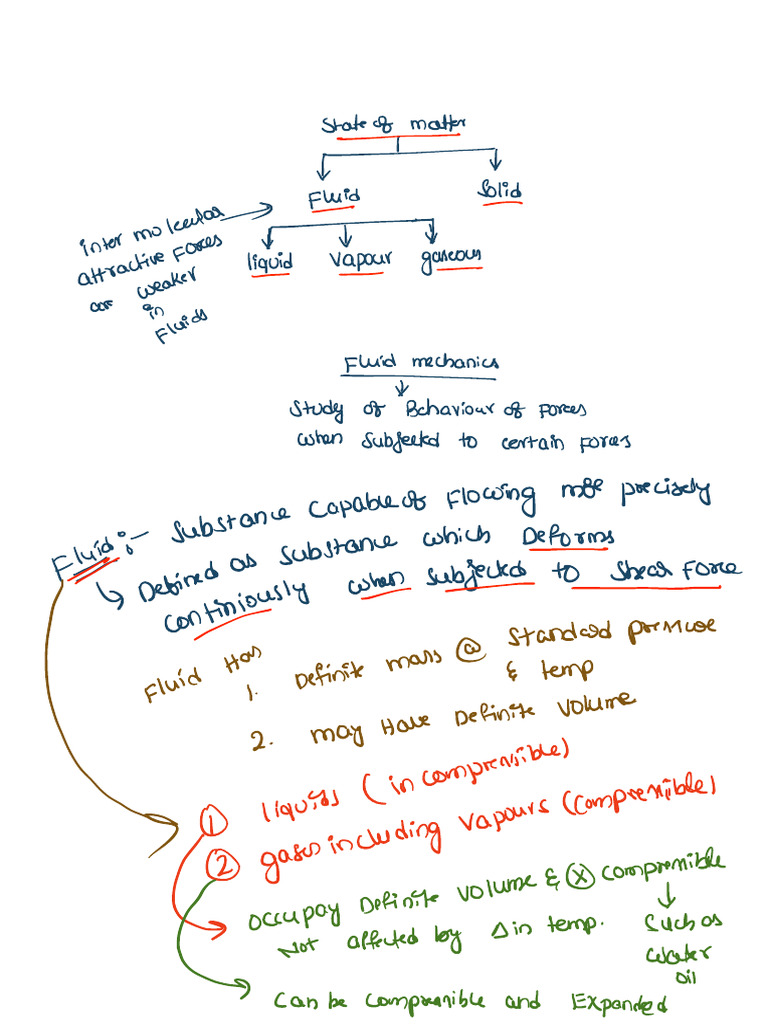 State of matter
Fluid
Solid
inter molecular
attractive Forces
are weaker
in
Fluids
liquid
vapour
gaseous
Fluid mechanics
Study of Behaviour of Forces
when subjected to certain Forces
Fluid:- Substance Capable of Flowing more precisely
Defined as substance which Deforms
continiously when subjected to shear Force
Fluid Has
1. Definite mass @ Standard pressure
& temp
2. may Have Definite Volume
① liquids (incompressible)
② gases including vapours (compressible)
occupay Definite Volume & ⓧ compressible
Not affected by Δ in temp.
Such as
water
oil
Can be compressible and Expanded